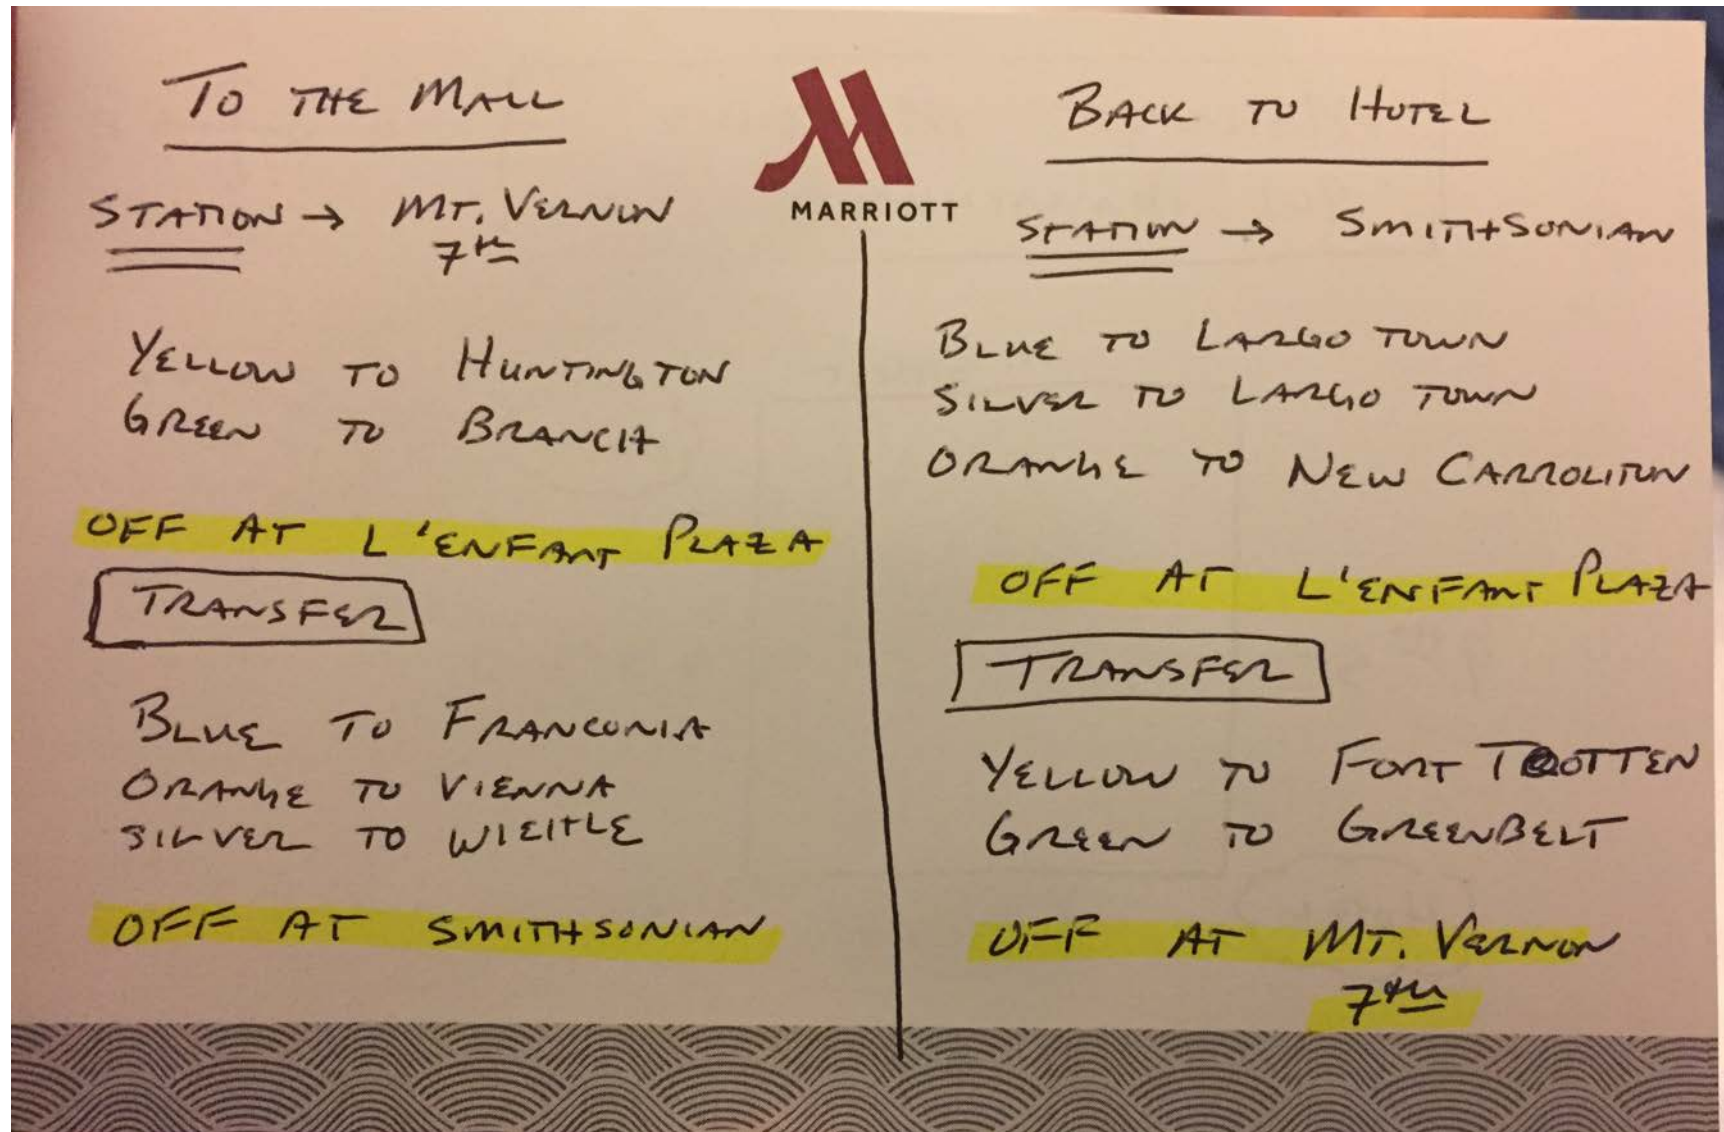 TO THE MALL
STATION → MT. VERNON
7th
YELLOW TO HUNTINGTON
GREEN TO BRANCH
OFF AT L'ENFANT PLAZA
TRANSFER
BLUE TO FRANCONIA
ORANGE TO VIENNA
SILVER TO WIEHLE
OFF AT SMITHSONIAN
MARRIOTT
BACK TO HOTEL
STATION → SMITHSONIAN
BLUE TO LARGO TOWN
SILVER TO LARGO TOWN
ORANGE TO NEW CARROLITON
OFF AT L'ENFANT PLAZA
TRANSFER
YELLOW TO FORT TOTTEN
GREEN TO GREENBELT
OFF AT MT. VERNON
7th